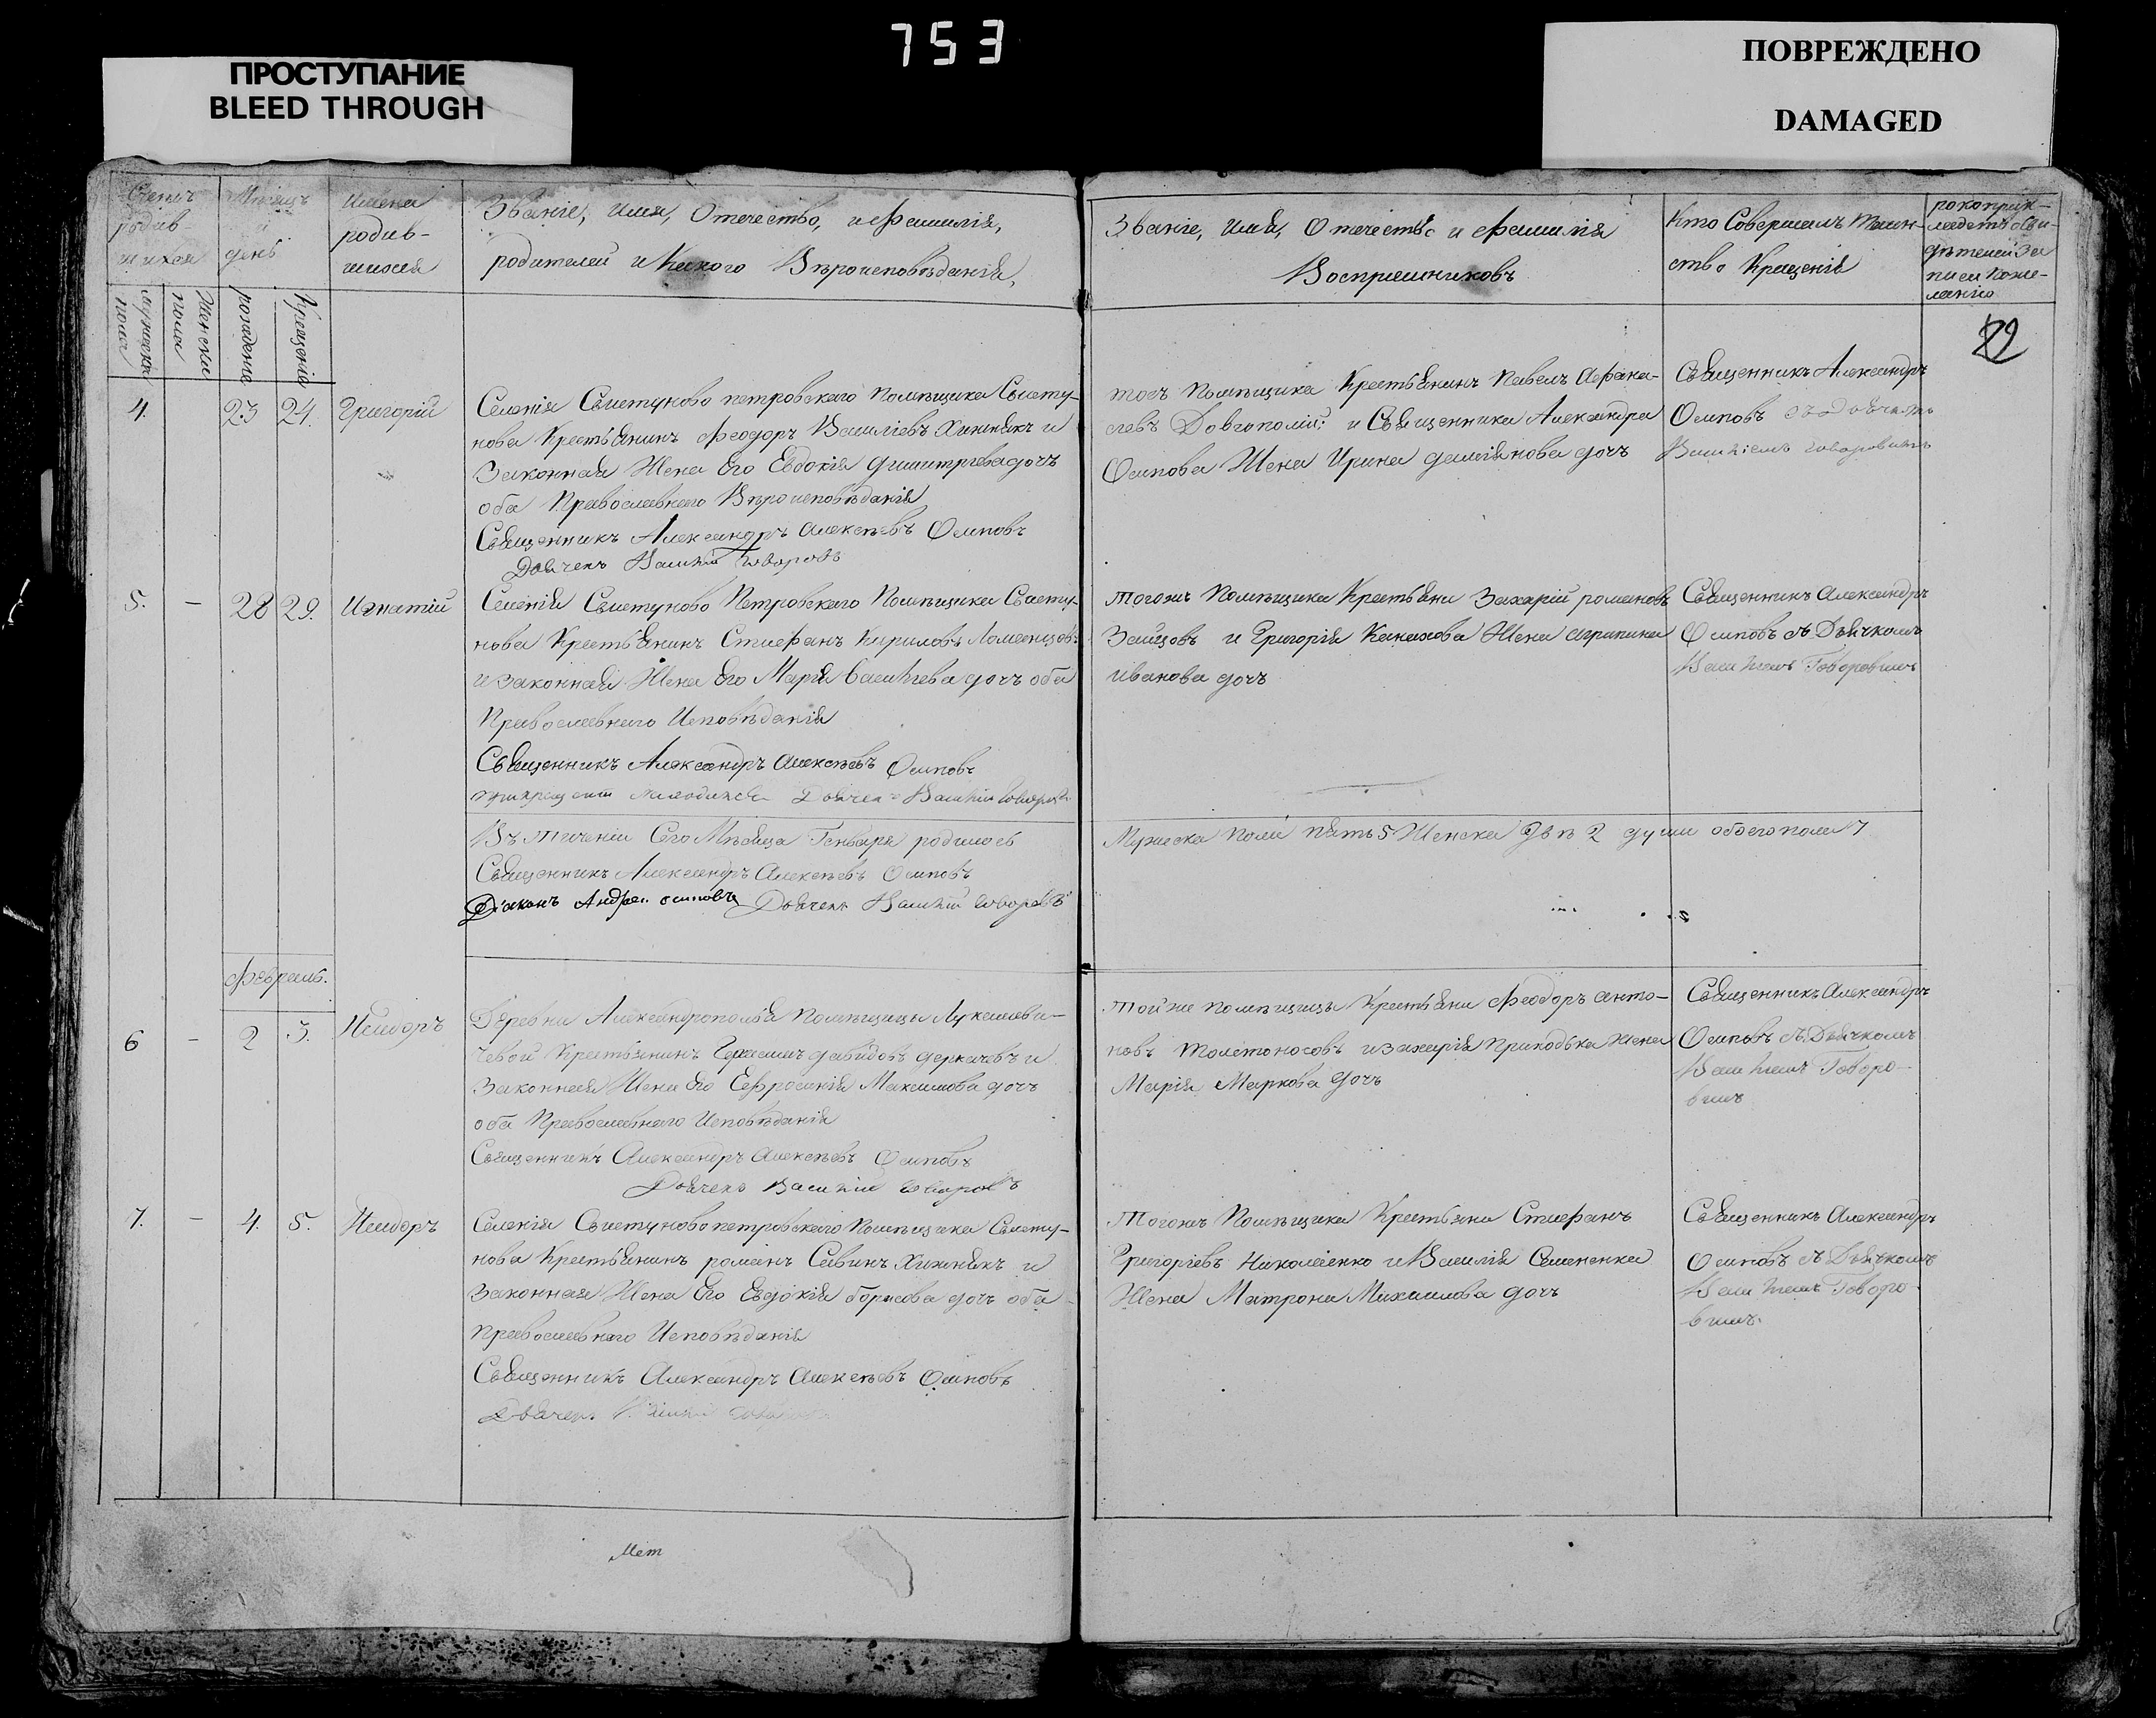 753
ПРОСТУПАНИЕ
BLEED THROUGH
ПОВРЕЖДЕНО
DAMAGED
Счетъ родив-шихся
Мѣсяцъ и день
Имена родив-шихся
Званіе, имя, Отечество, и фамилія,
родителей и Какого Вѣроисповѣданія,
мужеска пола
Женска пола
рожденія
Крещенія
Званіе, имя, Отечество и фамилія
Воспріемниковъ
Кто Совершалъ Таин-
ство Крещенія
рокоприк-
ладство сви-
дѣтелей За
писи поже-
ланію
22
4. 23 24. Григорій
Селенія Свистуново петровскаго Помѣщика Свисту-
нова Крестьянинъ Феодоръ Василіевъ Хижнякъ и
Законная Жена Его Евдокія Димитріева дочъ
оба Православнаго Вѣроисповѣданія
Священникъ Александръ Алексѣевъ Осиповъ
Дьячекъ Василій Говоровъ
тогъ Помѣщика Крестьянинъ Павелъ Афана-
сіевъ Довгополій и Священника Александра
Осипова Жена Ирина дамiянова дочъ
Священникъ Александръ
Осиповъ съ дьячкомъ
Василіемъ Говоровымъ
5. – 28 29. Игнатій
Селенія Свистуново Петровскаго Помѣщика Свисту-
нова Крестьянинъ Стиефанъ Кириловъ
и законная Жена Его Марія василіева дочъ оба
Православнаго Исповѣданія
Священникъ Александръ Алексѣевъ Осиповъ
Дьячекъ Василій Говоровъ
Тогожъ Помѣщика Крестьяни Захарій романовъ
Зайцовъ и Григорія Канахова Жена агрипина
иванова дочъ
Священникъ Александръ
Осиповъ съ Дьячкомъ
Василіемъ Говоровымъ
Въ теченіи Сего Мѣсяца Генваря родилось
Священникъ Александръ Алексѣевъ Осиповъ
Діаконъ Андрей осиповъ Дьячекъ Василій Говоровъ
Мужеска пола пять 5 Женска Двѣ 2 души обоего пола 7
Февраль.
6 – 2 3. Исидоръ
Деревни Александрополья Помѣщицы Лукашеви-
чевой Крестьянинъ Герасимъ давидовъ деркачевъ и
Законная Жена Его Ефросинія Максимова дочъ
оба Православнаго Исповѣданія
Священникъ Александръ Алексѣевъ Осиповъ
Дьячекъ Василій Говоровъ
Тойже помѣщицы Крестьяни Феодоръ анто-
новъ Толстоносовъ и захарія Приходька жена
Марія Маркова дочъ
Священникъ Александръ
Осиповъ съ Дьячкомъ
Василіемъ Говоро-
вимъ
7. – 4. 5. Исидоръ
Селенія Свистуново петровскаго Помѣщика Свисту-
нова Крестьянинъ романъ Савинъ Хижнякъ и
Законная Жена Его Евдокія борисова дочъ оба
православнаго Исповѣданія
Священникъ Александръ Алексѣевъ Осиповъ
Дьячекъ Василій Говоровъ
Тогожъ Помѣщика Крестьяни Стиефанъ
Григоріевъ Николаенко и Василія Семененка
Жена Матрона Михаилова дочъ
Священникъ Александръ
Осиповъ съ Дьячкомъ
Василіемъ Говоро-
вимъ.
Мет